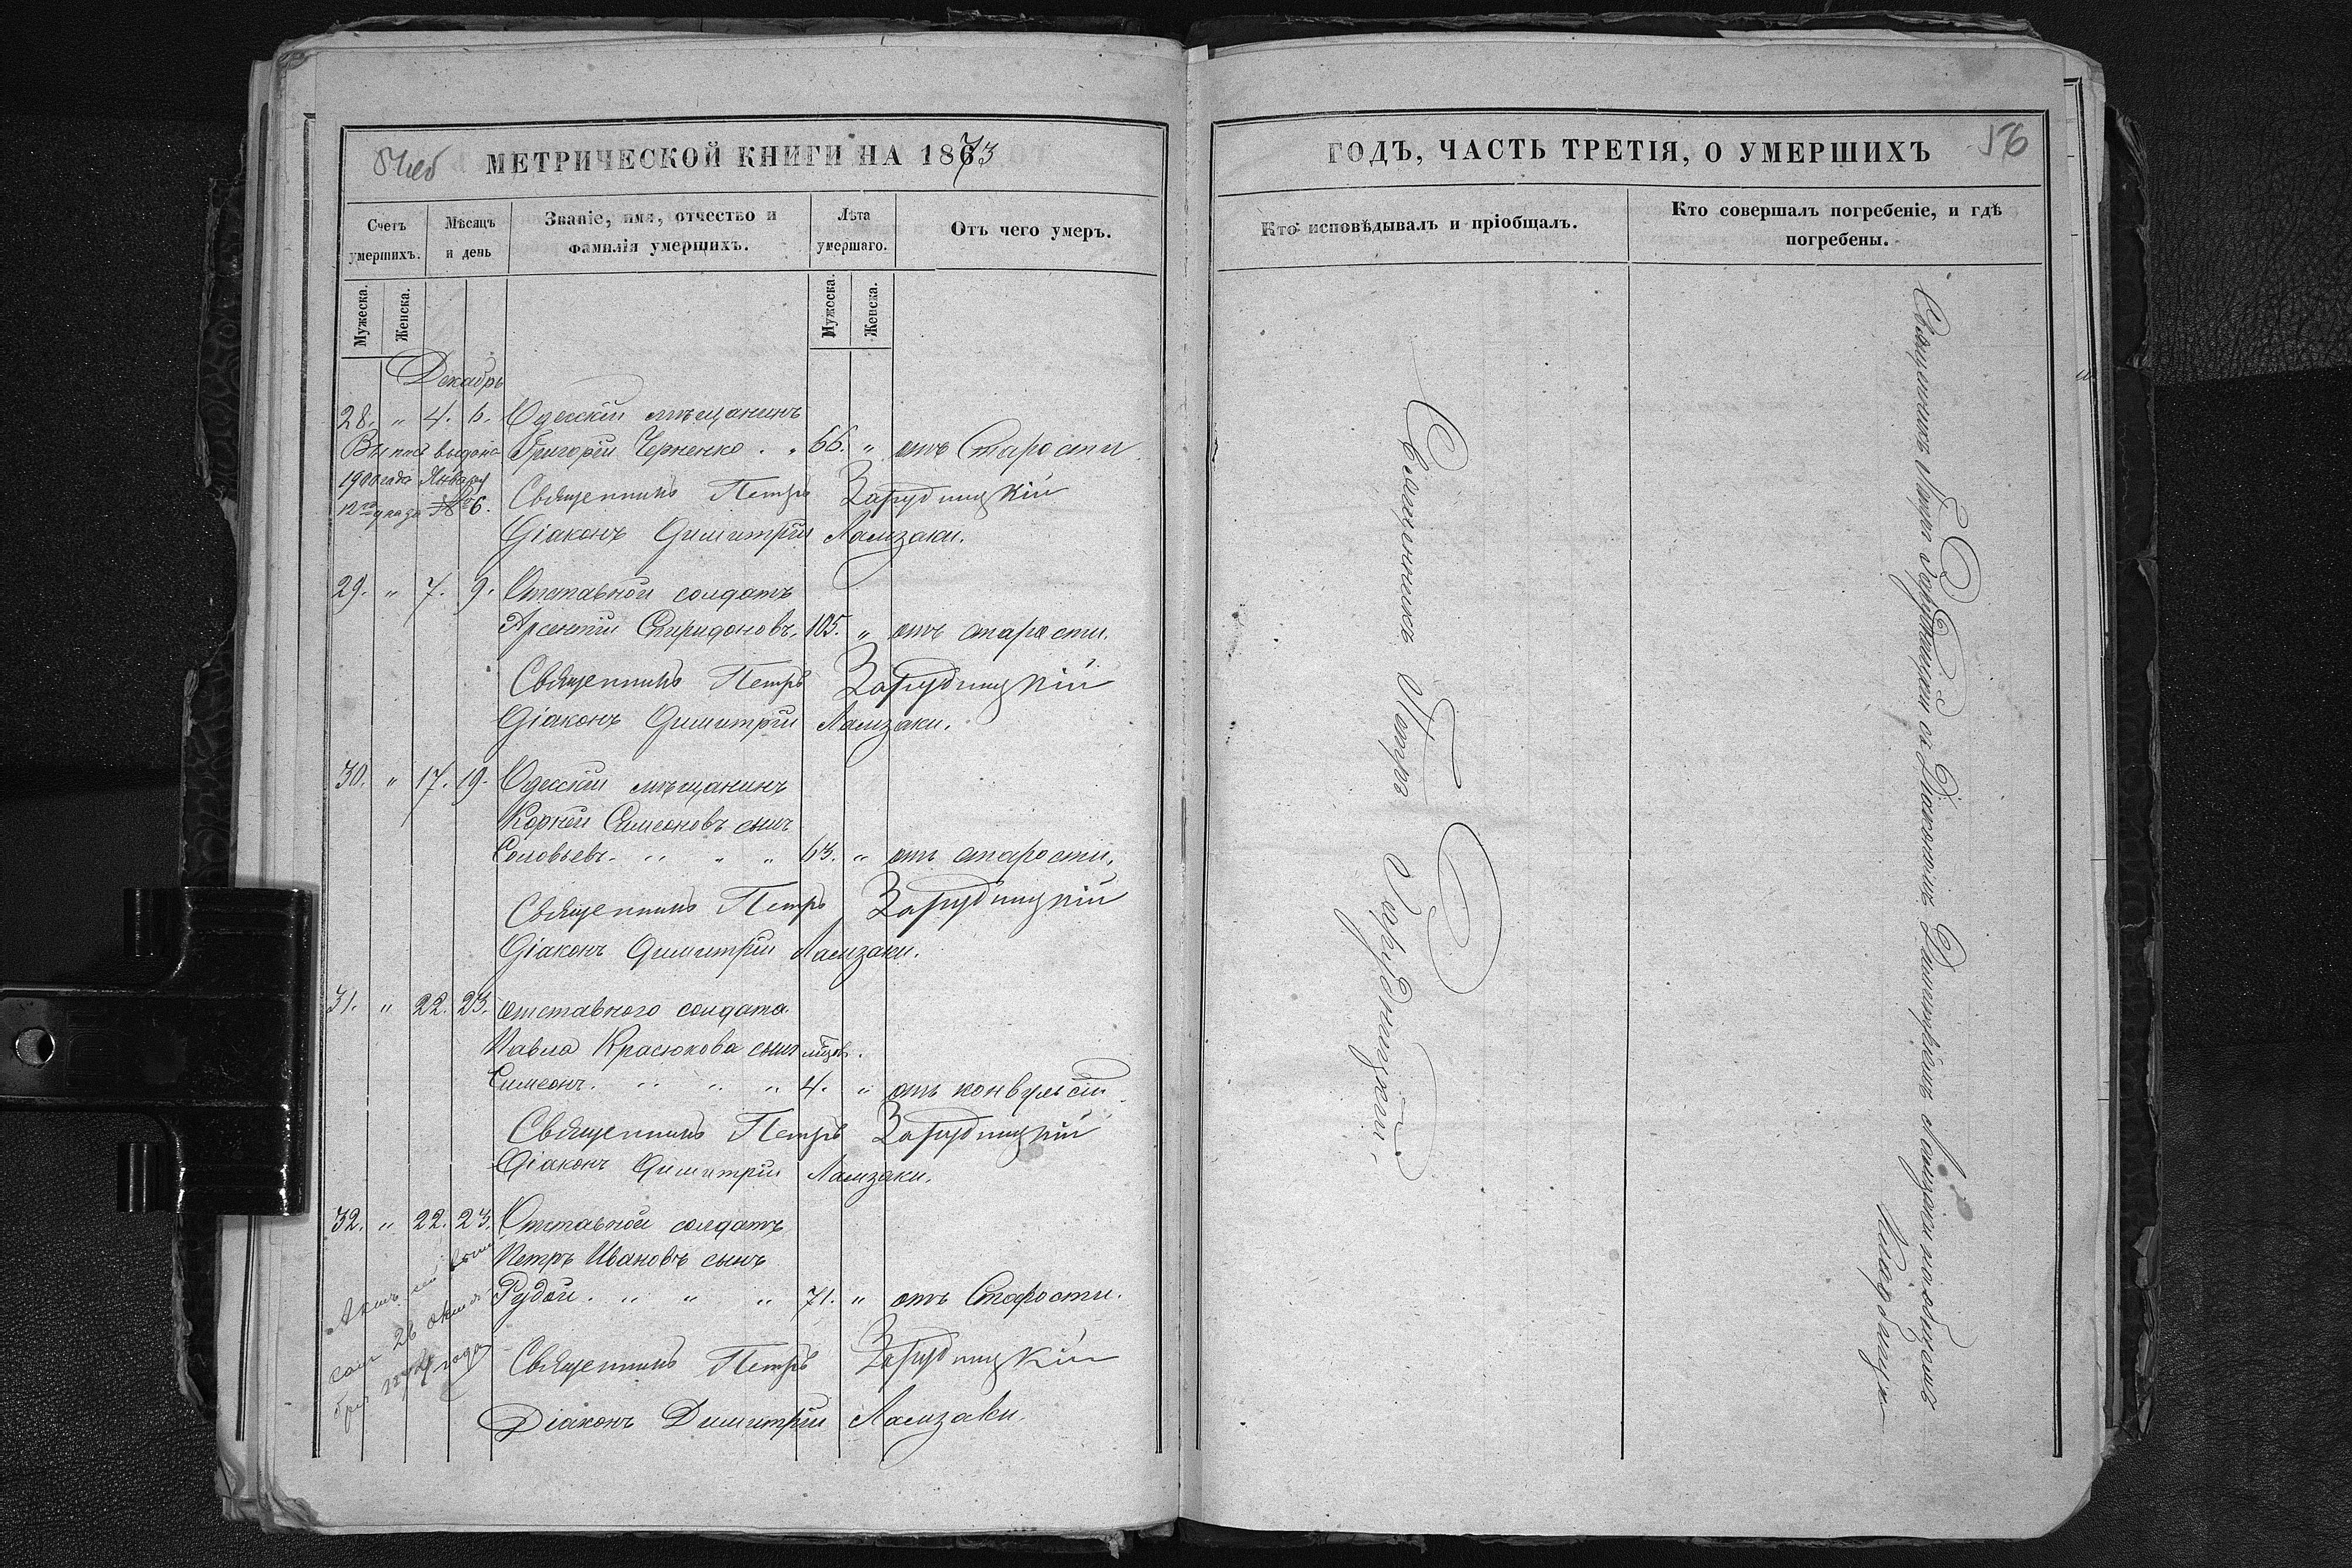 МЕТРИЧЕСКОЙ КНИГИ НА 1873
Счетъ умершихъ.
Мѣсяцъ и день
Званіе, имя, отчество и фамилія умершихъ.
Лѣта умершаго.
Отъ чего умеръ.
Мужеска.
Женска.
Мужеска.
Женска.
Декабрь
28. " 4. 6. Одесскій мѣщанинъ
Григорій Черненко. " 66. " отъ Старости
Выпись выдана
1900 года Января
12го указа № 6.
Священникъ Петръ Зарудницкій
Діаконъ Димитрій Ламзаки.
29. " 7. 9. Отставной солдатъ
Арсентій Спиридоновъ. 105. " отъ старости.
Священникъ Петръ Зарудницкій
Діаконъ Димитрій Ламзаки.
30. " 17. 19. Одесскій мѣщанинъ
Корней Симеоновъ сынъ
Соловьевъ. " " " 63. " отъ старости.
Священникъ Петръ Зарудницкій
Діаконъ Димитрій Ламзаки.
31. " 22. 23. отставного солдата
Павла Красюкова сынъ мѣсяц.
Симеонъ. " " " 4. " отъ конвульсіи
Священникъ Петръ Зарудницкій
Діаконъ Димитрій Ламзаки.
32. " 22. 23. Отставной солдатъ
Петръ Ивановъ сынъ
Рудой. " " " 71. " отъ Старости.
Актъ сей
26 октя
бря года
Священникъ Петръ Зарудницкій
Діаконъ Димитрій Ламзаки.
ГОДЪ, ЧАСТЬ ТРЕТІЯ, О УМЕРШИХЪ
56
Кто исповѣдывалъ и пріобщалъ.
Кто совершалъ погребеніе, и гдѣ погребены.
Священникъ Петръ Зарудницкій.
Священникъ Петръ Зарудницкій съ Діакономъ Димитріемъ Ламзаки на общемъ
кладбищѣ